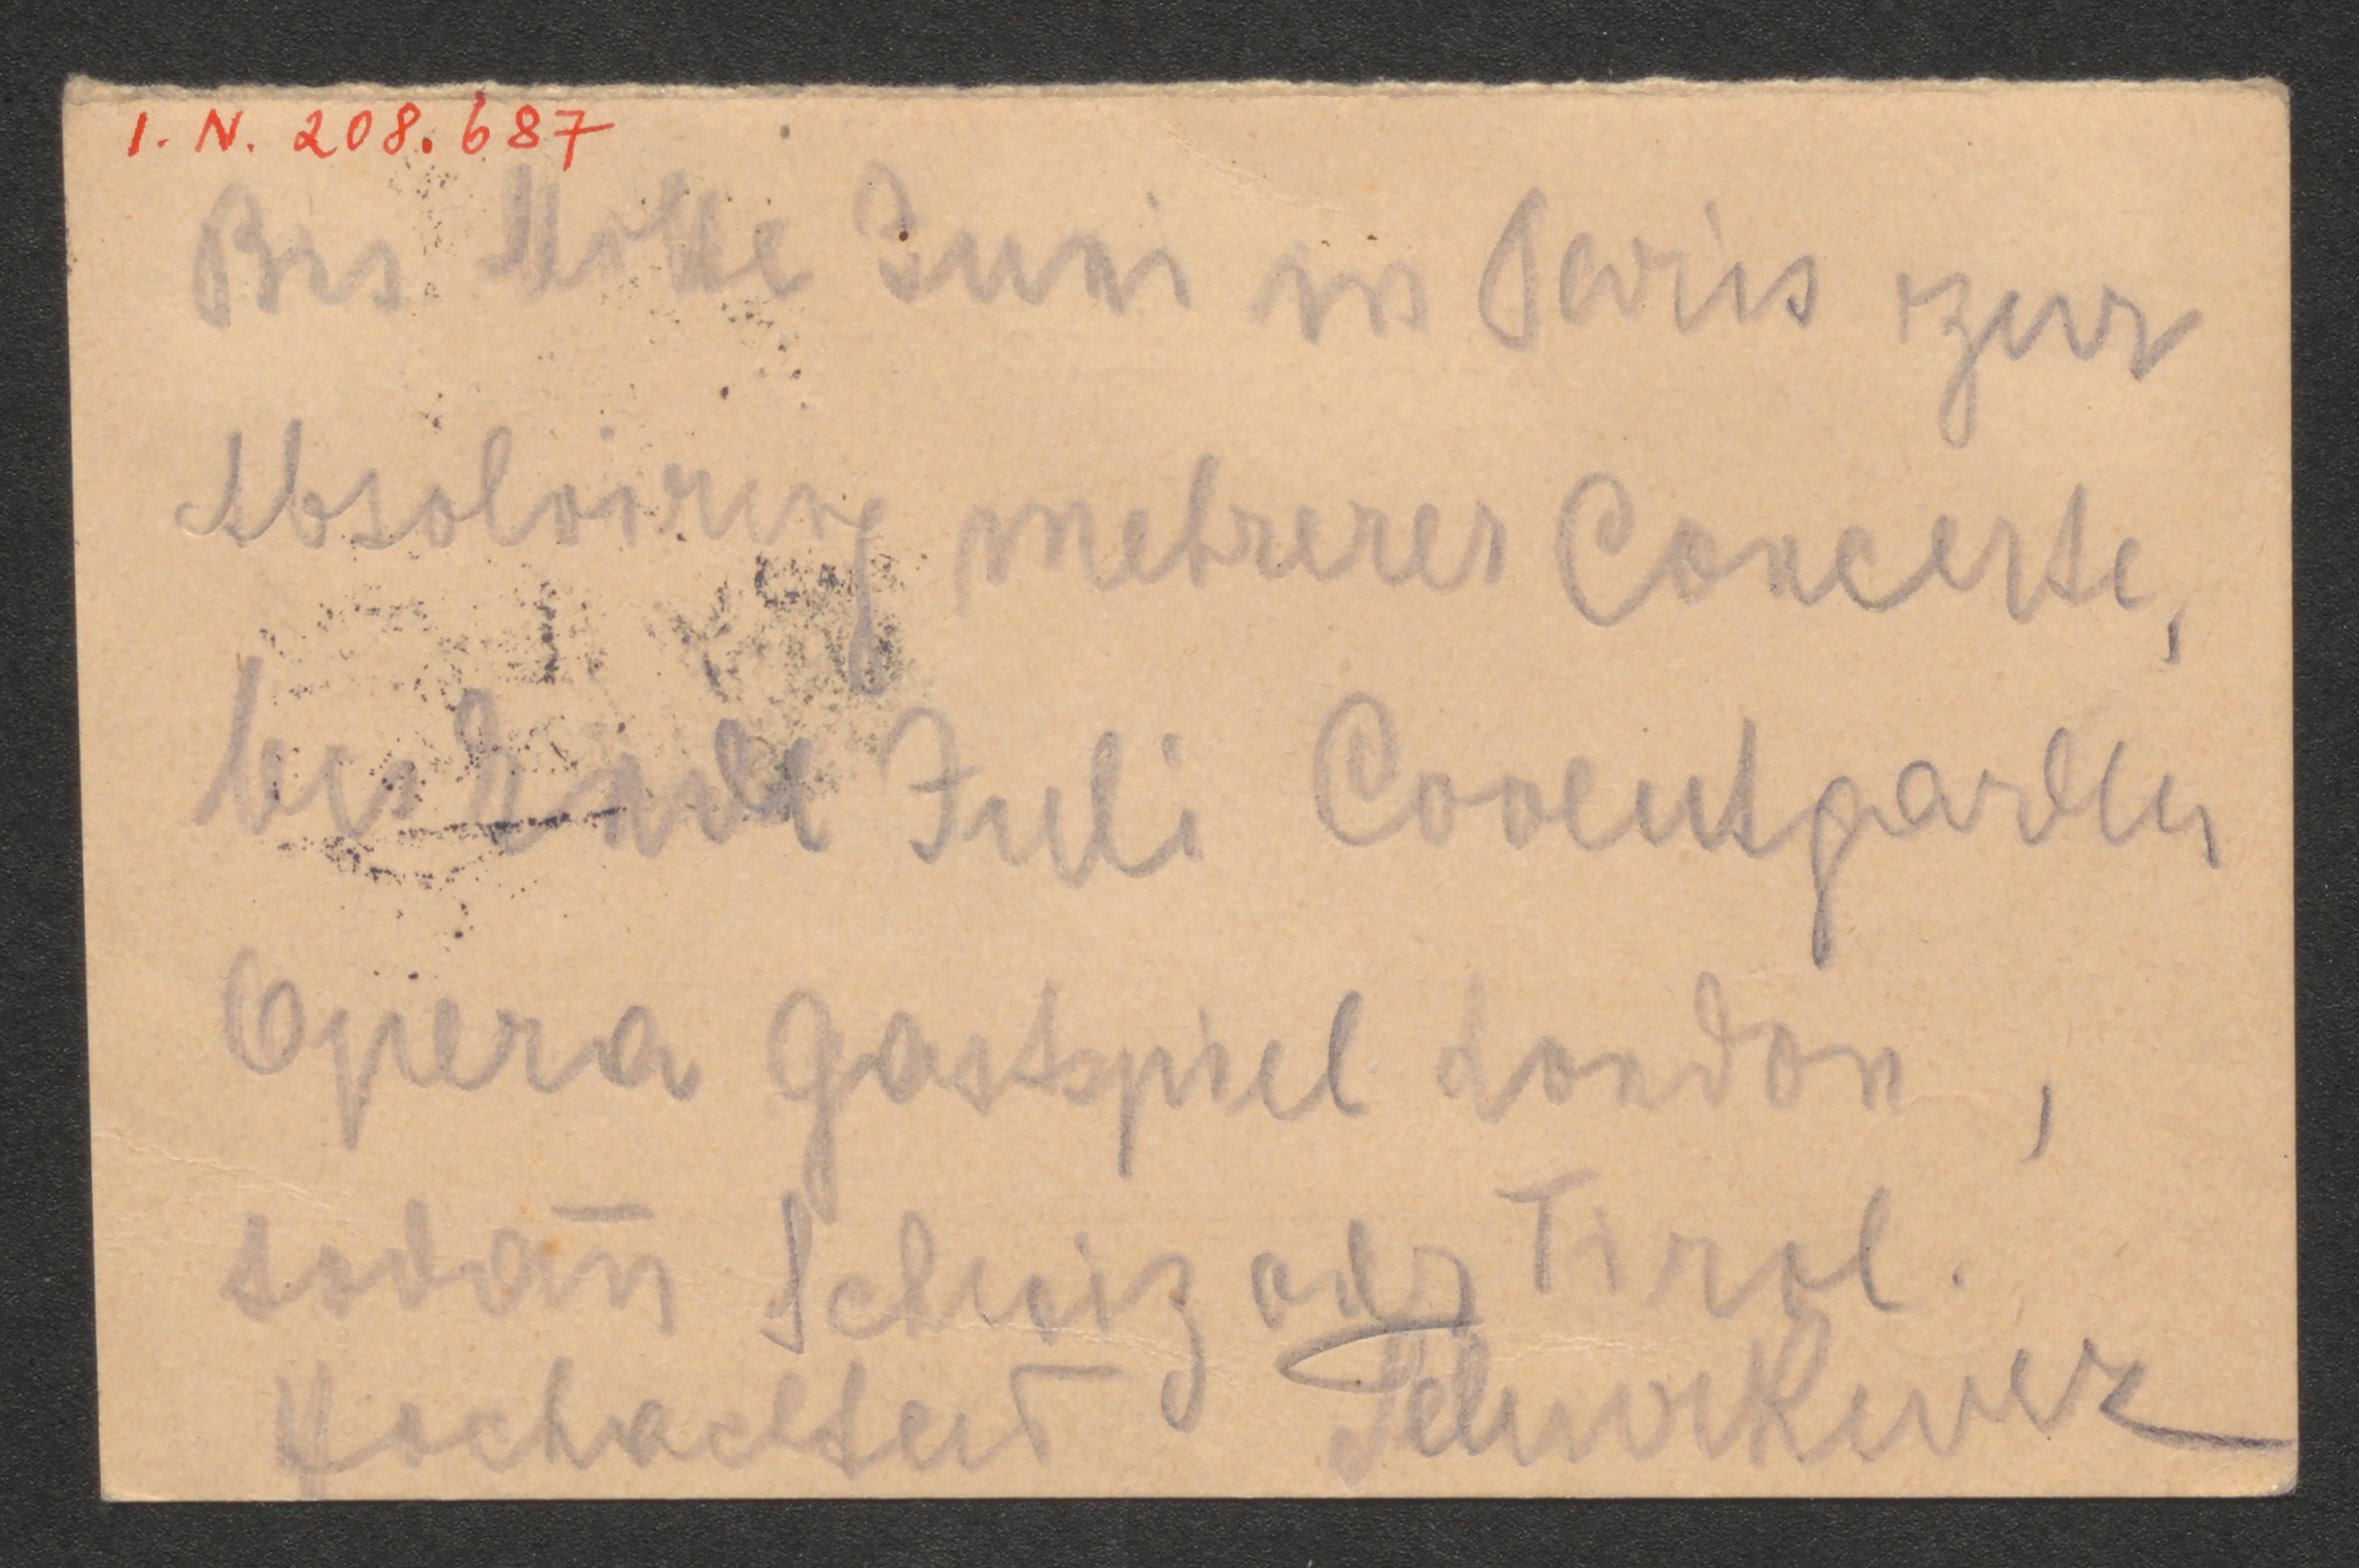 I. N. 208.687
Bis Mitte Juni in Paris zur
Absolvirung mehrerer Concerte,
bis Ende Juli Coventgarden
Opera Gastspiel London,
sodan̄ Schweiz oder Tirol.
Hochachtend